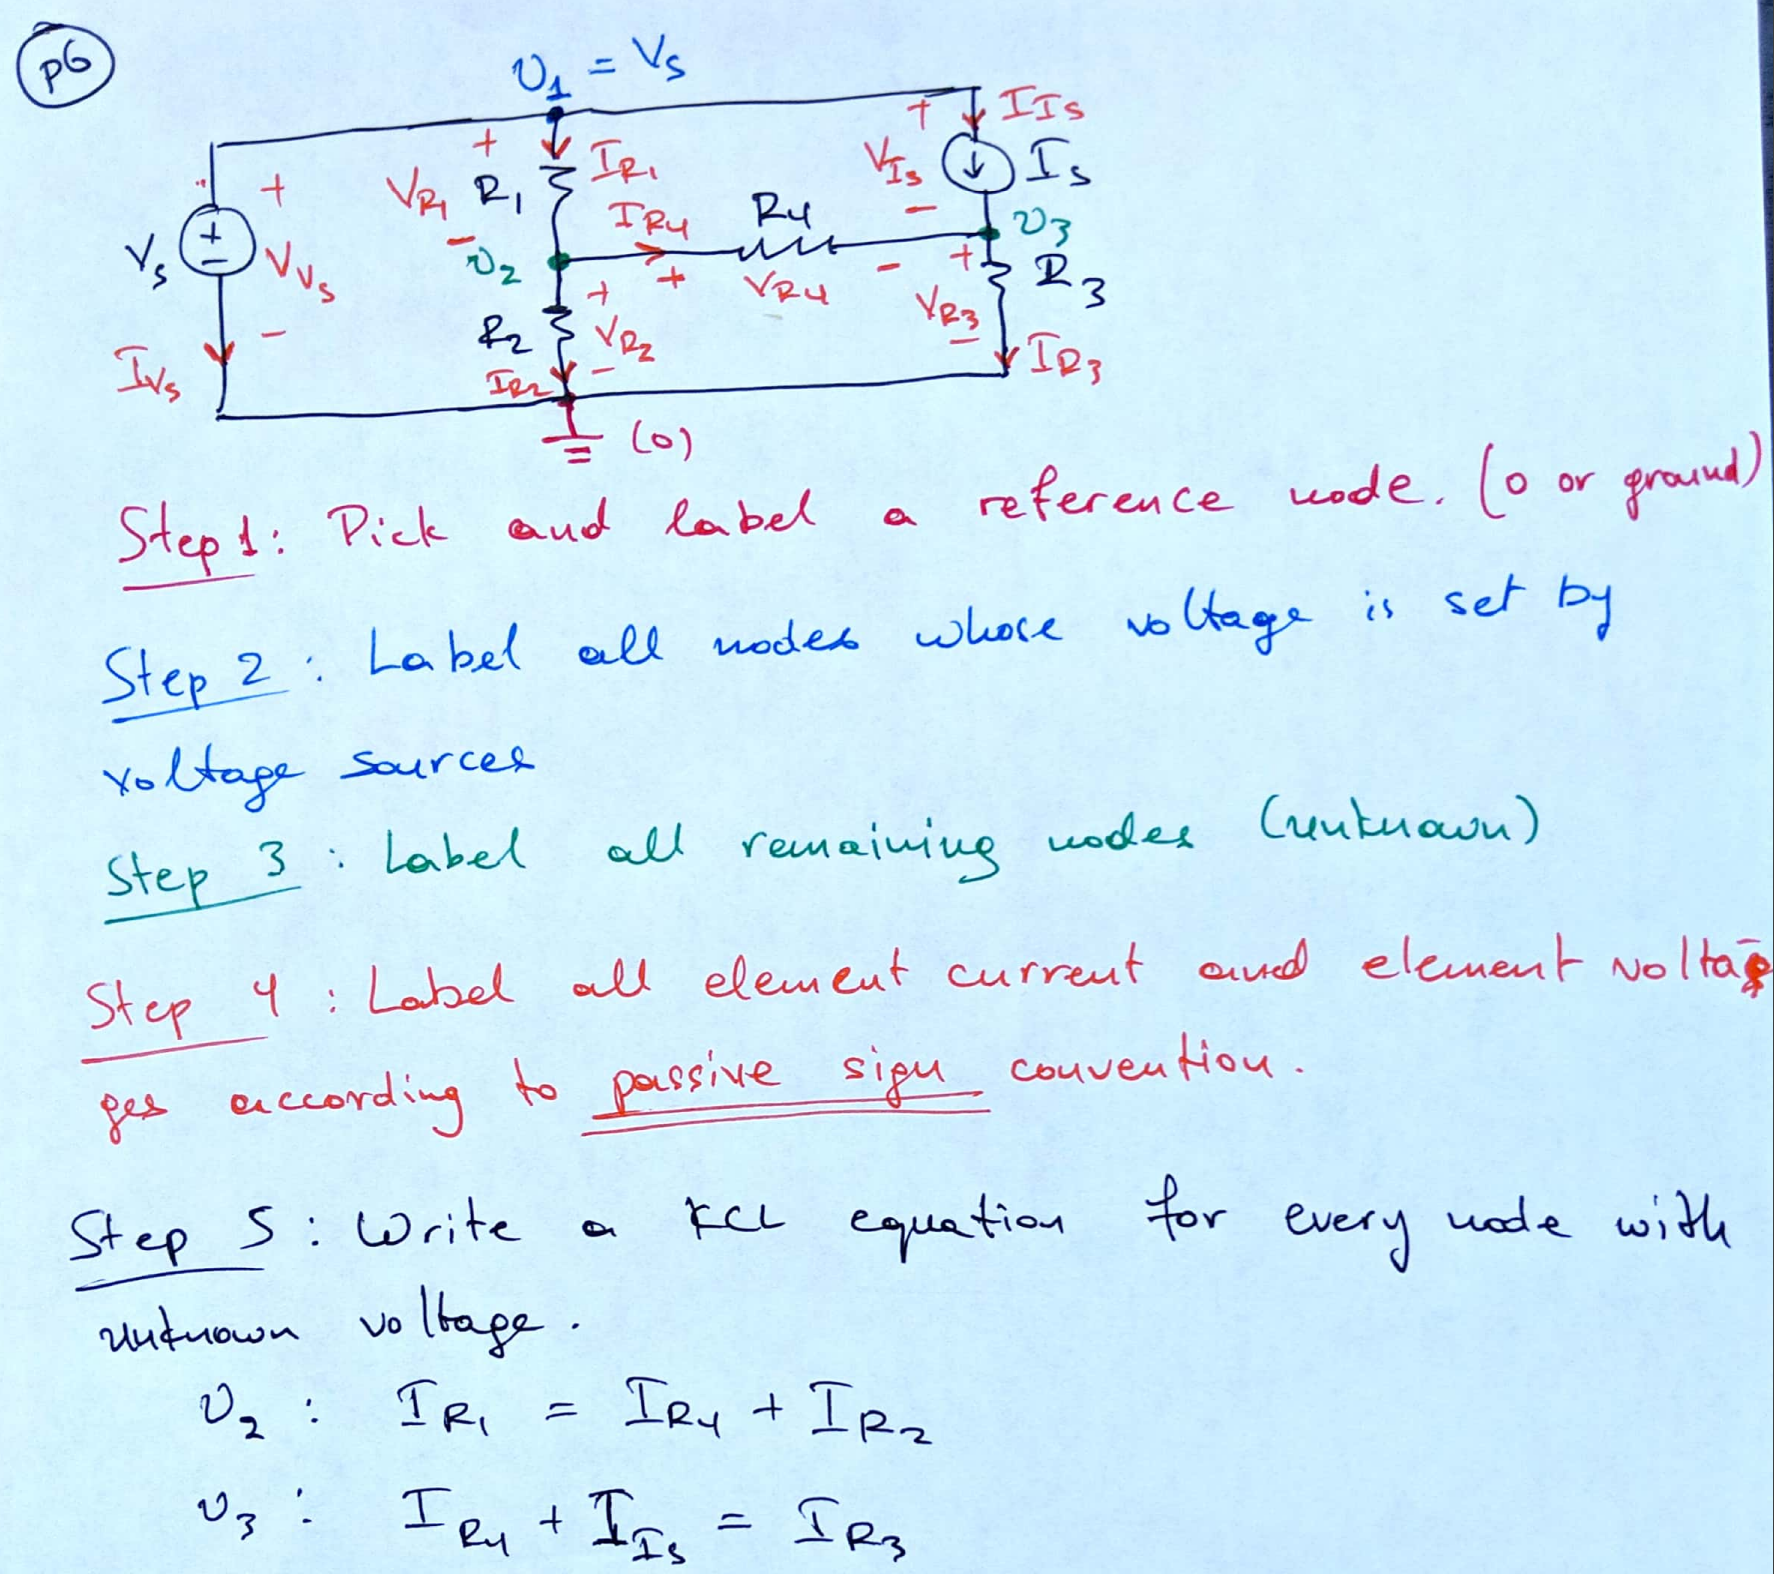 p6
υ1 = Vs
+ IIs
+ IR1 VIs Is
+ VR1 R1
IR4 R4 -
Vs VVs - υ2 + VR4 - υ3
+ R3
+ VR3
- R2 VR2 -
IVs IR2 - IR3
(0)
Step 1: Pick and label a reference node. (0 or ground)
Step 2: Label all nodes whose voltage is set by
voltage sources
Step 3: Label all remaining nodes (unknown)
Step 4: Label all element current and element volta
ges according to passive sign convention.
Step 5: Write a KCL equation for every node with
unknown voltage.
υ2 : IR1 = IR4 + IR2
υ3 : IR4 + IIs = IR3